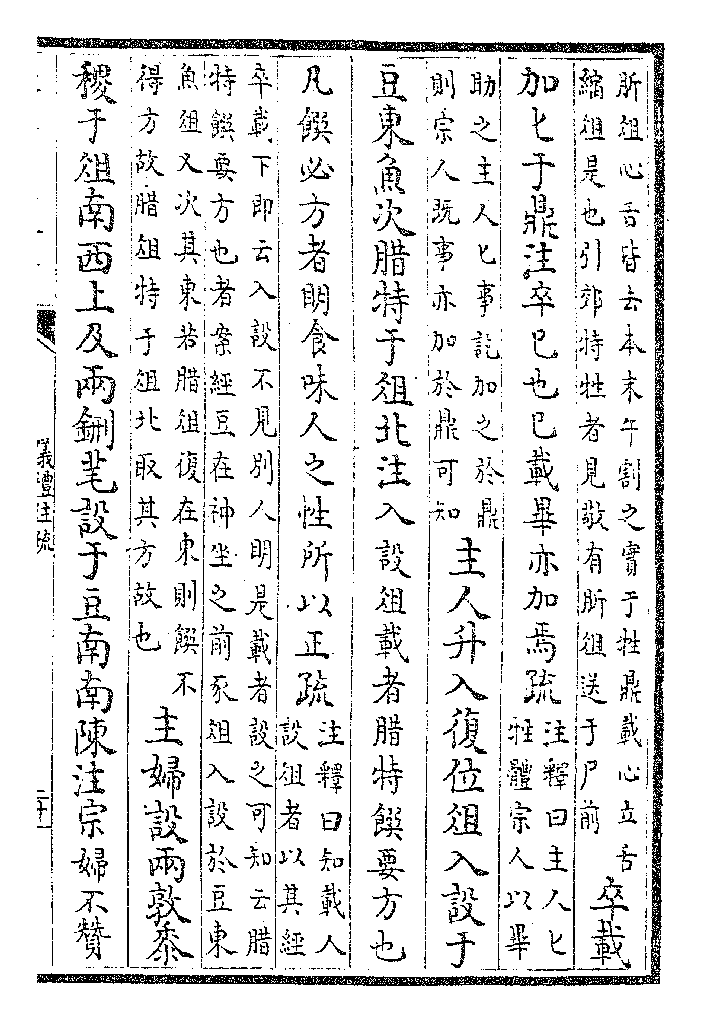 肵俎心舌皆去本末午割之實于牲鼎載心立舌
縮俎是也引郊特牲者見敬有肵俎送于尸前
卒載
加匕于鼎注卒已也已載畢亦加焉疏
注釋曰主人匕
牲體宗人以畢
助之主人匕事訖加之於鼎
則宗人既事亦加於鼎可知
主人升入復位俎入設于
豆東魚次腊特于俎北注入設俎載者腊特饌要方也
凡饌必方者明食味人之性所以正疏
注釋曰知載人
設俎者以其經
卒載下即云入設不見別人明是載者設之可知云腊
特饌要方也者案經豆在神坐之前豕俎入設於豆東
魚俎又次其東若腊俎復在東則饌不
得方故腊俎特于俎北取其方故也
主婦設兩敦黍
稷于俎南西上及兩鉶芼設于豆南南陳注宗婦不贊
儀禮注疏